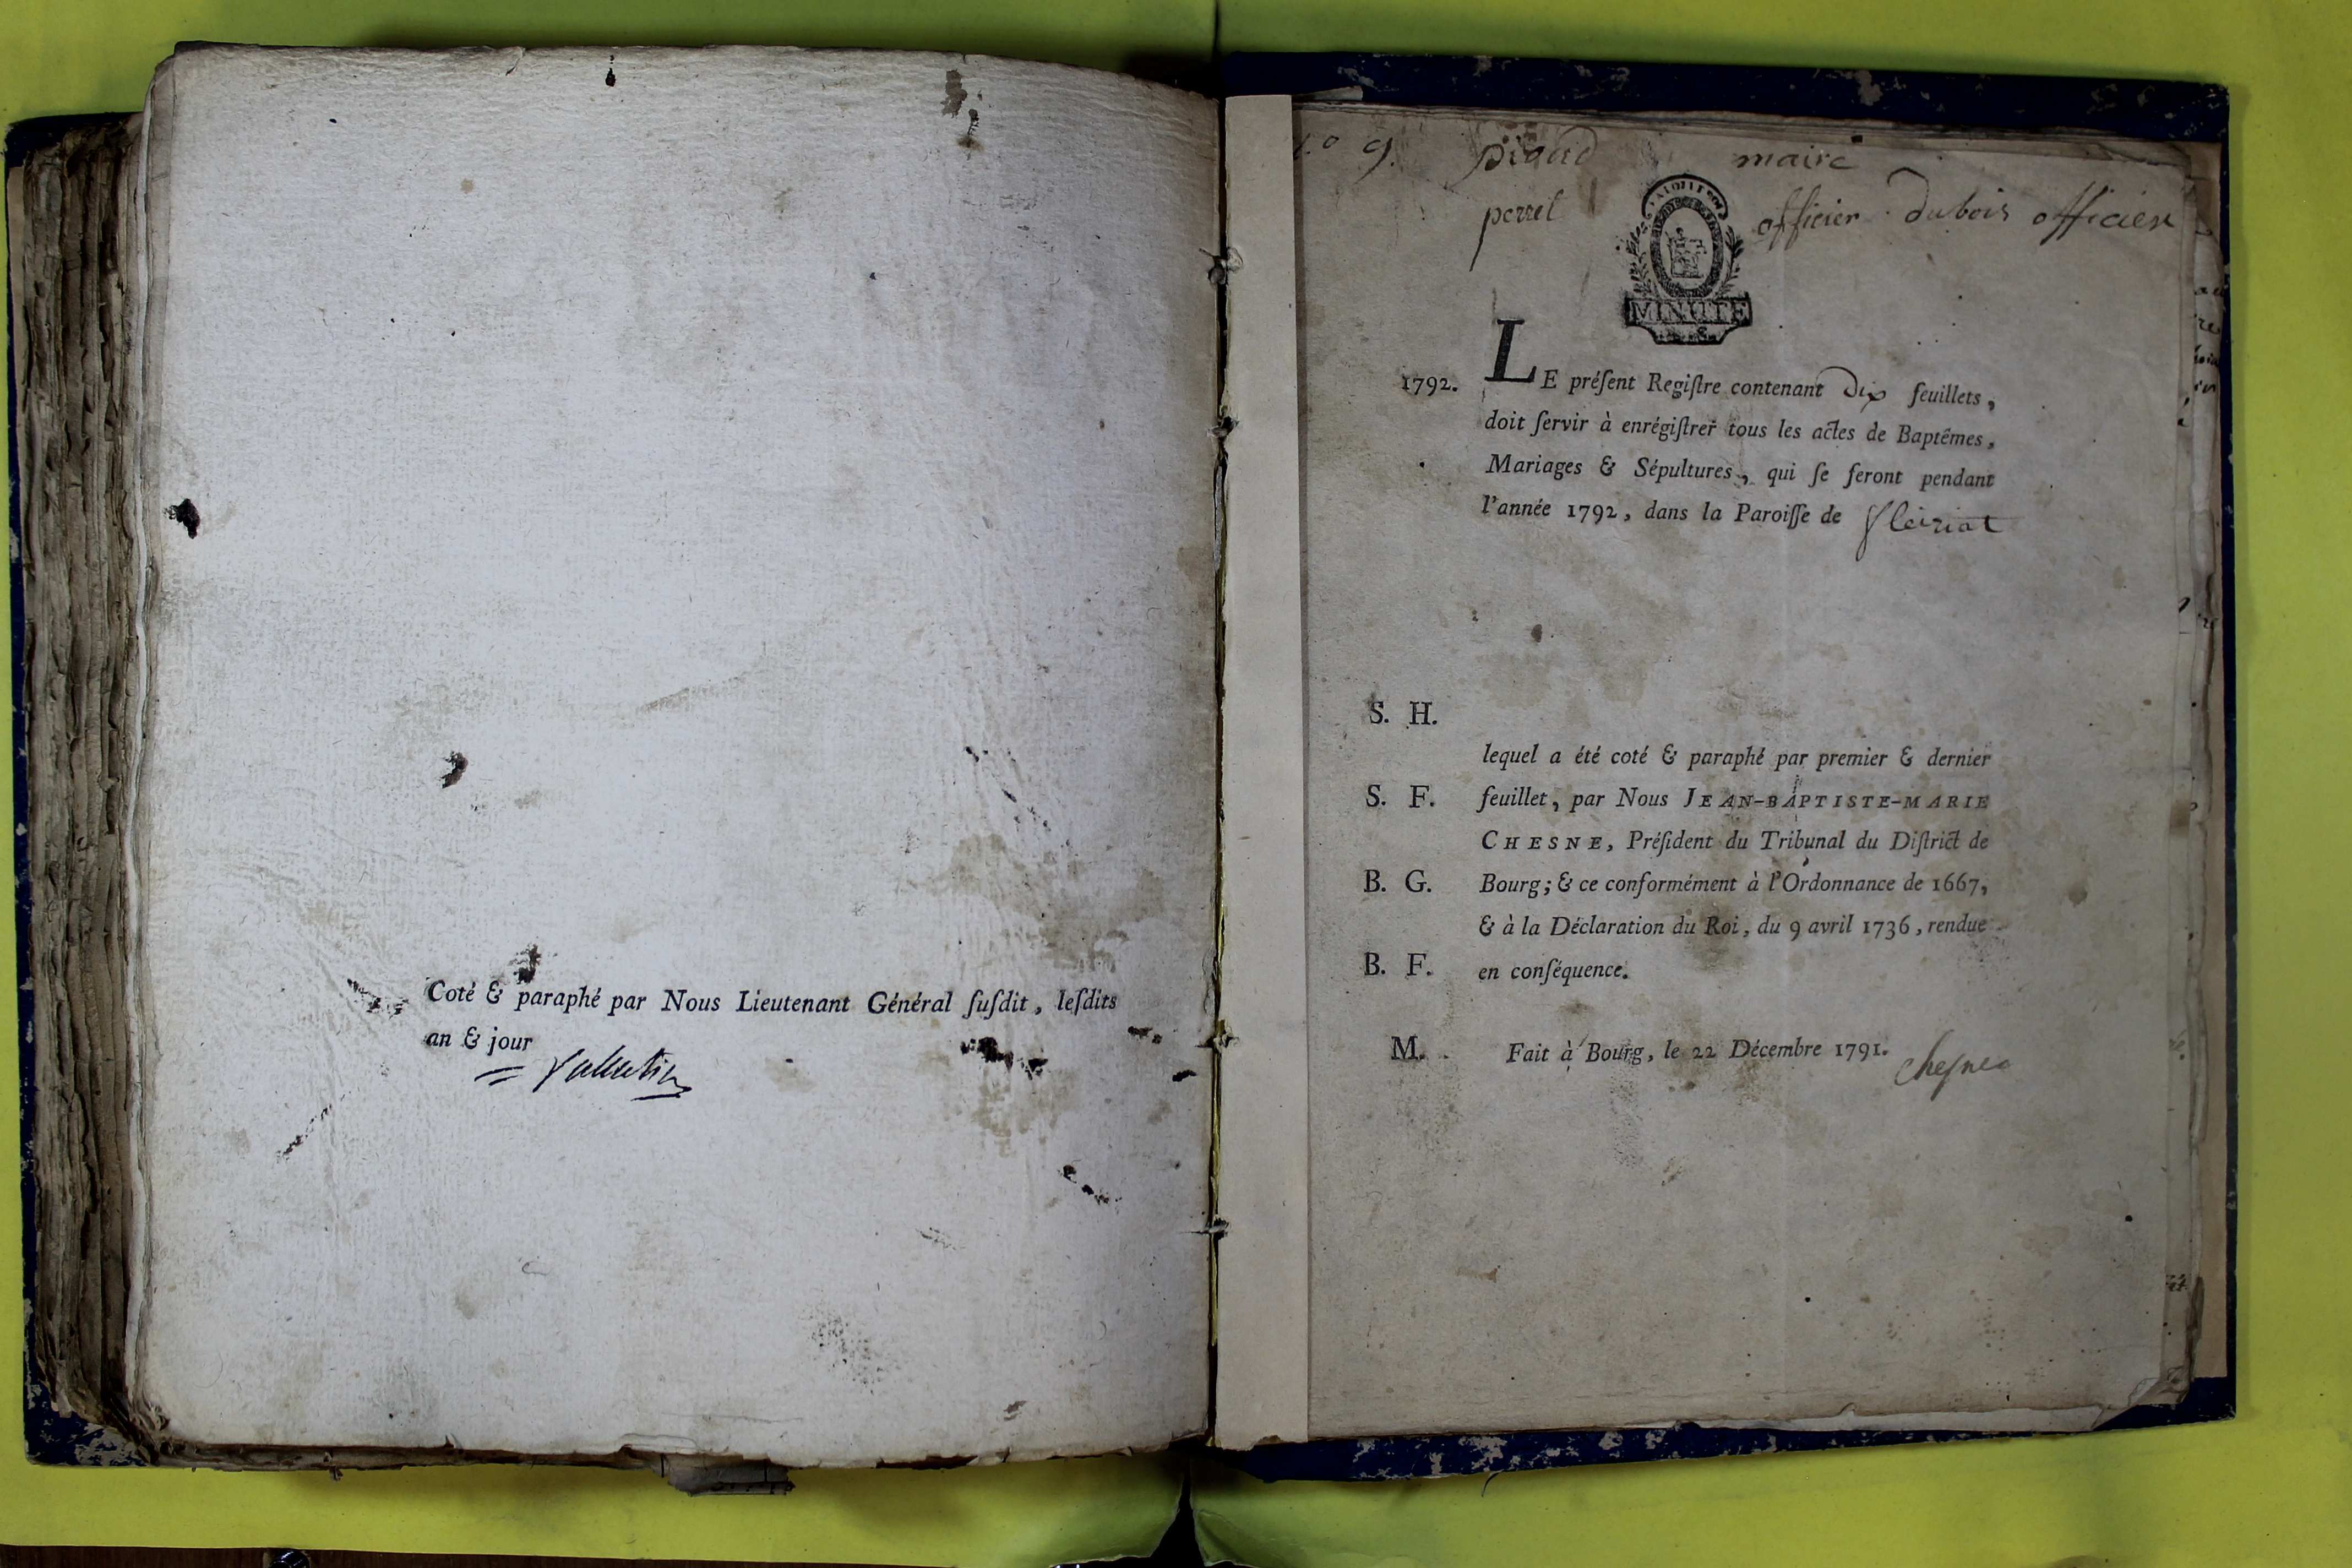 Coté & paraphé par Nous Lieutenant Général ſuſdit, leſdits
an & jour
9. maire
perret officier dubois officier
LA LOI LE ROI
MINUTE
1792. LE préſent Regiſtre contenant Dix feuillets,
doit ſervir à enrégiſtrer tous les actes de Baptêmes,
Mariages & Sépultures, qui ſe feront pendant
l'année 1792, dans la Paroiſſe de fleiriat
S. H.
lequel a été coté & paraphé par premier & dernier
S. F. feuillet, par Nous JEAN-BAPTISTE-MARIE
CHESNE, Préſident du Tribunal du Diſtrict de
B. G. Bourg; & ce conformément à l'Ordonnance de 1667,
& à la Déclaration du Roi, du 9 avril 1736, rendue
B. F. en conſéquence.
M. Fait à Bourg, le 22 Décembre 1791. Cheſne